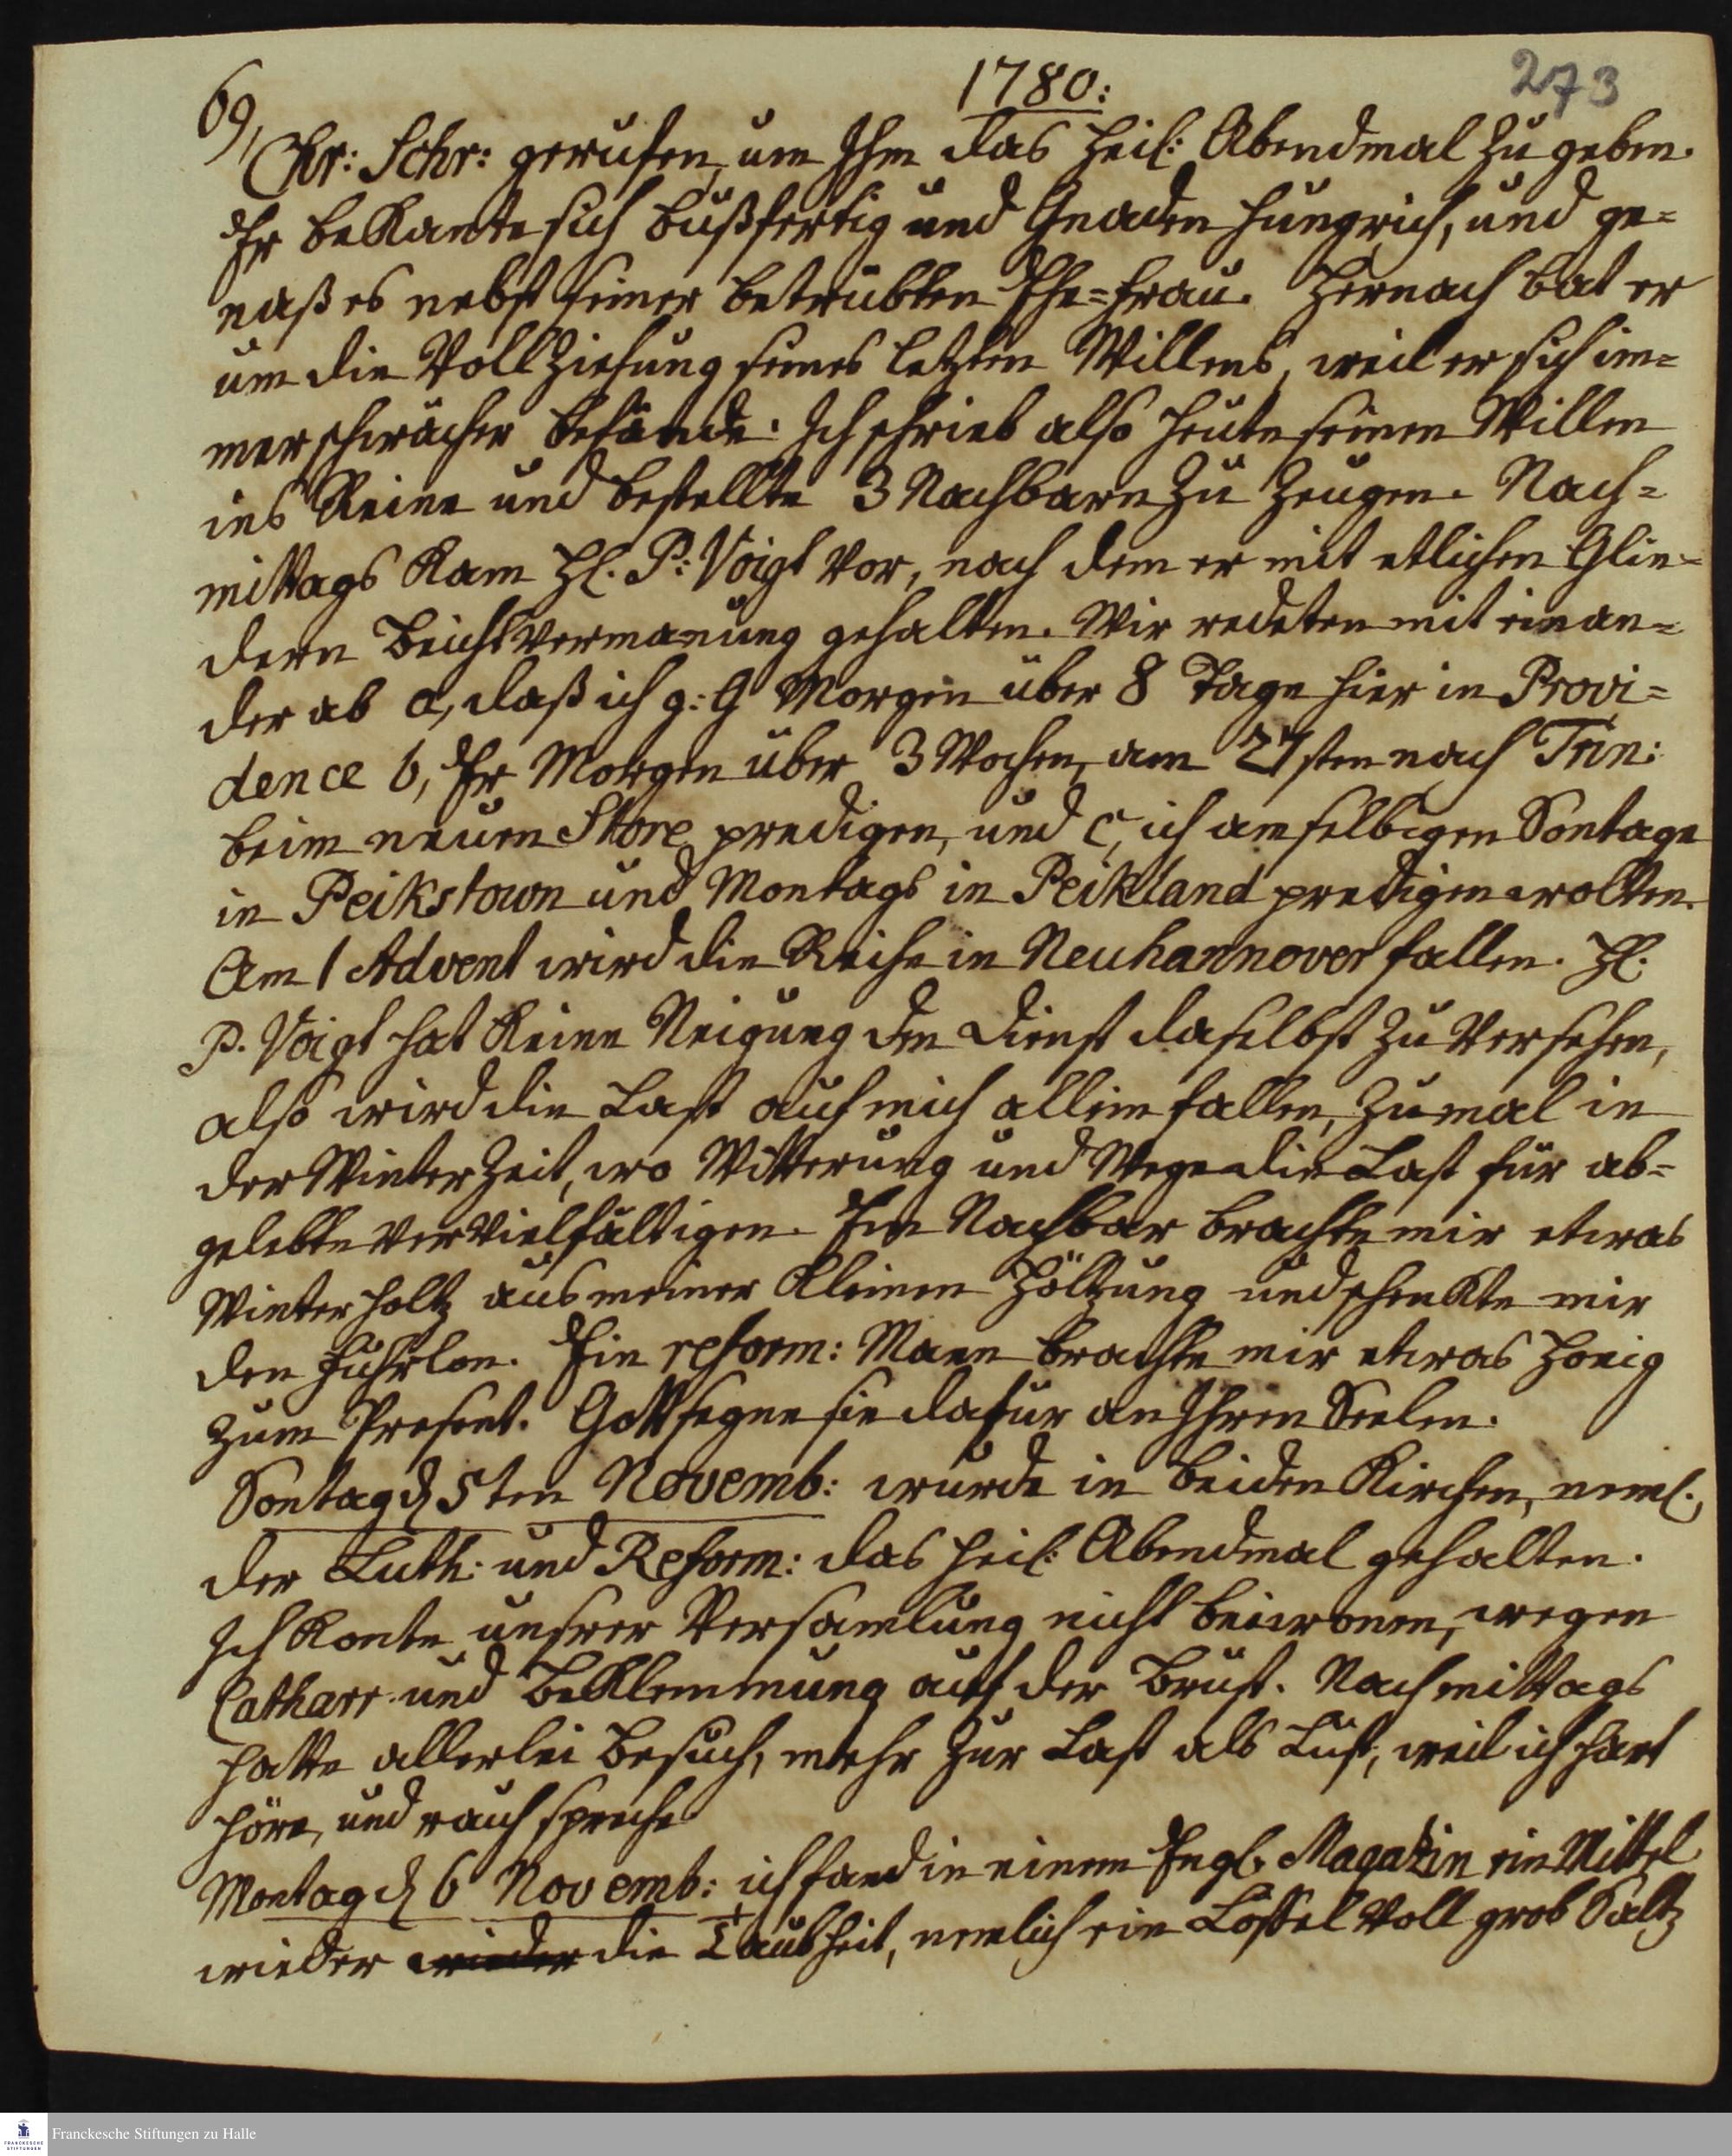 1780:
273
69,
Chr: Schr: gerufen, um Ihm das heil: Abendmal zu geben.
Er bekante sich bußfertig und Gnaden hungrich, und ge=
naß es nebst seiner betrübten Ehe=frau. Hernach bat er
um die Vollziehung seines letzten Willens, weil er sich im=
mer schwächer befände. Ich schrieb also heute seinen Willen
ins Reine und bestellte 3 Nachbarn zu Zeugen. Nach=
mittags kam H. P: Voigt vor, nach dem er mit etlichen Glie=
dern Beichtvermanung gehalten. Wir redeten mit einan=
der ab a, daß ich g: G Morgen über 8 Tage hier in Provi=
dence b, Er Morgen über 3 Wochen, am 27sten nach Trin:
beim neuen Store predigen, und c, ich am selbigen Sontage
in Peikstown und Montags in Peikland predigen wolten.
Am 1 Advent wird die Reihe in Neuhannover fallen. H.
P. Voigt hat keine Neigung den Dienst daselbst zu versehen,
also wird die Last auf mich allein fallen, zumal in
der Winter Zeit, wo Witterung und Wege die Last für ab=
gelebte vervielfältigen. Ein Nachbar brachte mir etwas
Winter holtz aus meiner kleinen Höltzung und schenkte mir
den Fuhrlon. Ein reform: Mann brachte mir etwas Honig
zum Present. Gott segne sie dafur an Ihren Seelen.
Sontag d 5ten Novemb: wurde in beiden Kirchen, neml.,
der Luth: und Reform: das heil: Abendmal gehalten.
Ich konte unsrer Versamlung nicht beiwonen, wegen
Catharr und Beklemmung auf der Brust. Nachmittags
hatte allerlei Besuch, mehr zur Last als Lust, weil ich hart
höre, und rauh spreche.
Montag d 6 Novemb: ich fand in einem Engl. Magazin ein Mittel
wieder wieder die Taubheit, nemlich ein Löffel voll grob Saltz
Franckesche Stiftungen zu Halle
FRANCKESCHE
STIFTUNGEN